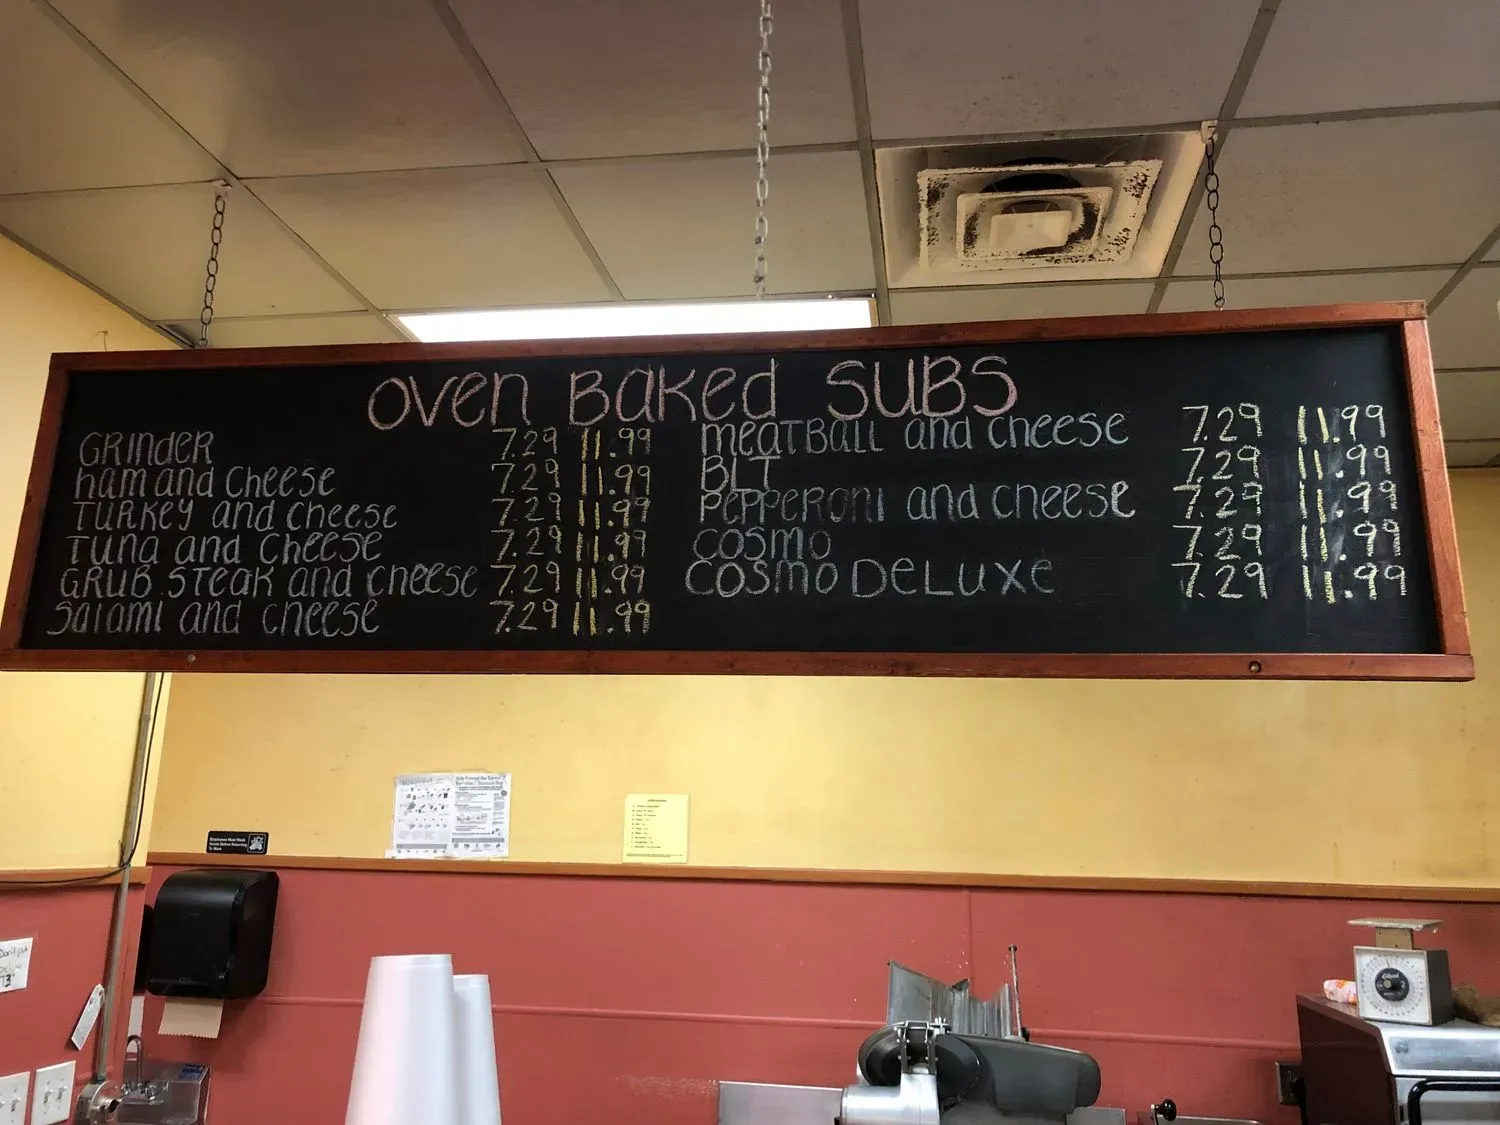 OVEN BAKED SUBS
GRINDER 7.29 11.99
HAM and CHEESE 7.29 11.99
TURKEY and CHEESE 7.29 11.99
TUNA and CHEESE 7.29 11.99
GRUB STEAK and CHEESE 7.29 11.99
SALAMI and CHEESE 7.29 11.99
MEATBALL and CHEESE 7.29 11.99
BLT 7.29 11.99
PEPPERONI and CHEESE 7.29 11.99
COSMO 7.29 11.99
COSMO DELUXE 7.29 11.99
Employees Must Wash
Hands Before Returning
To Work
Don't put